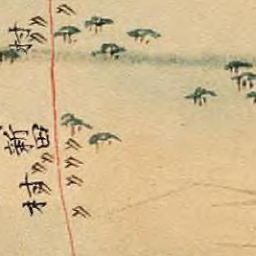 村
新田
村